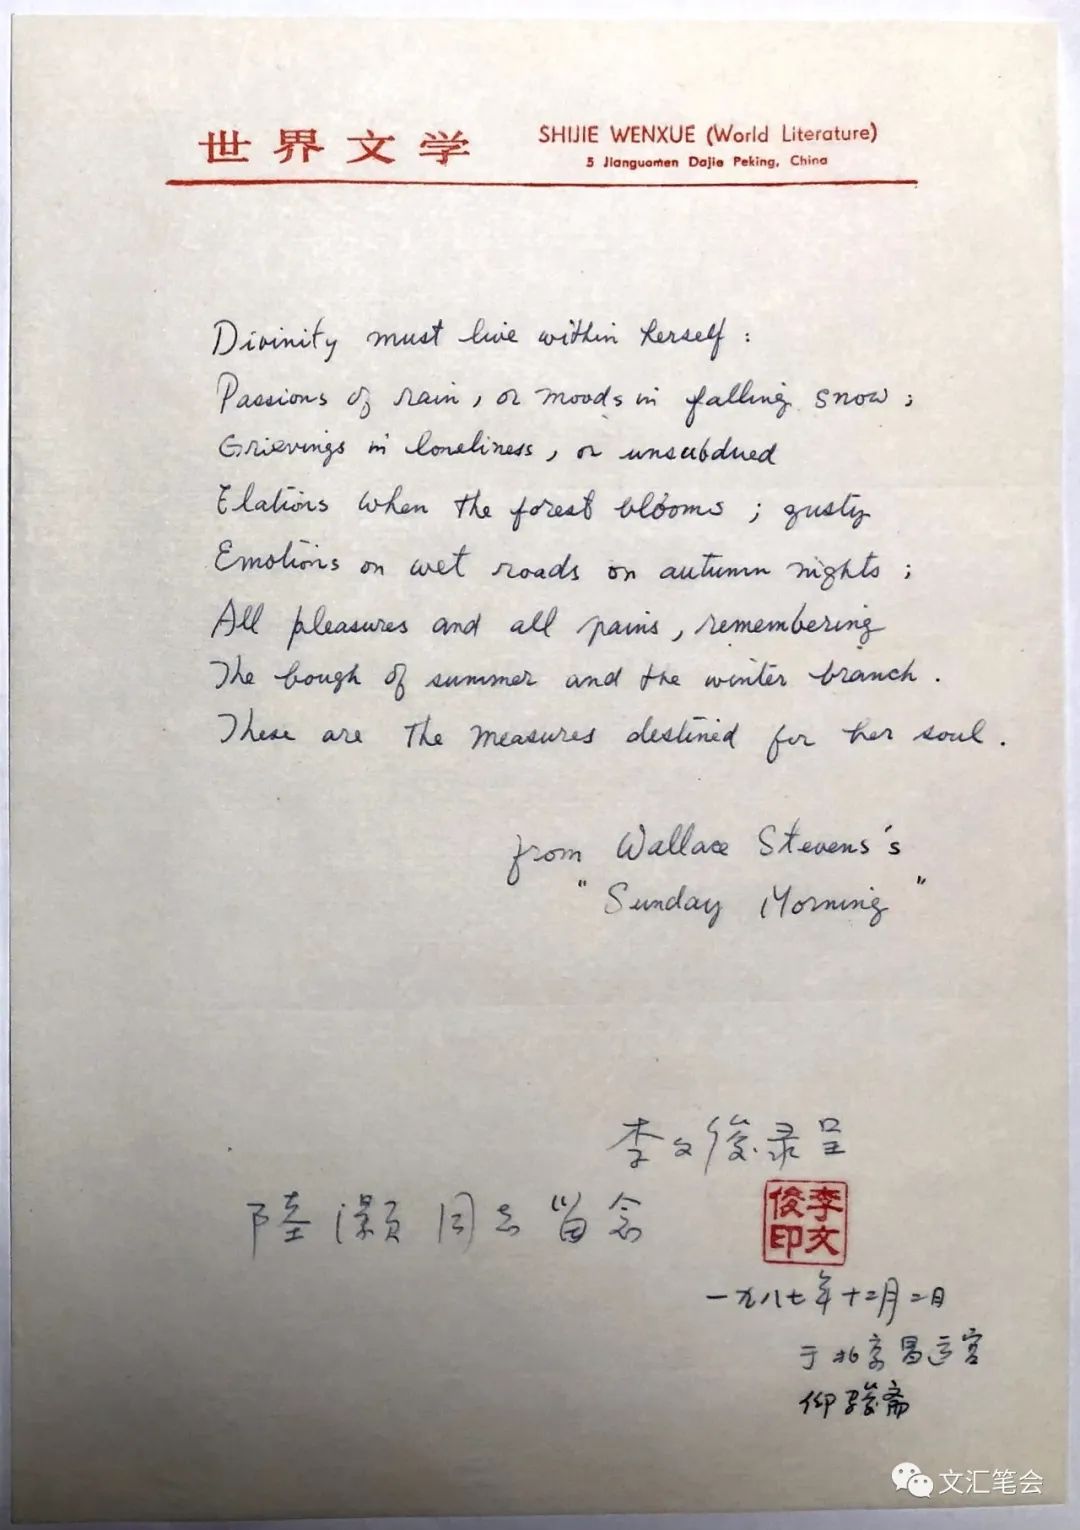 世界文学
SHIJIE WENXUE (World Literature)
5 Jianguomen Dajie Peking, China
Divinity must live within herself:
Passions of rain, or moods in falling snow;
Grievings in loneliness, or unsubdued
Elations when the forest blooms; gusty
Emotions on wet roads on autumn nights;
All pleasures and all pains, remembering
The bough of summer and the winter branch.
These are the measures destined for her soul.
from Wallace Stevens's
"Sunday Morning"
李文俊录呈
陸灏同志留念
李文俊印
一九八七年十二月二日
于北京昌运宫
仰骏斋
文汇笔会